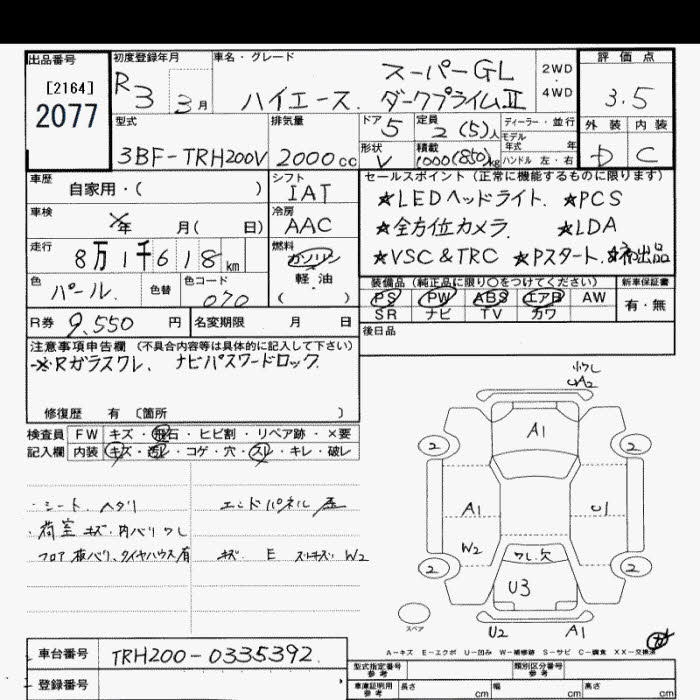 出品番号
[2164]
2077
初度登録年月
R3 3月
車名・グレード
スーパーGL
ハイエース. ダークプライムⅡ
2WD
・
4WD
評価点
3.5
外装 内装
D C
型式
3BF-TRH200V
排気量
2000cc
ドア 5
形状 V
定員
2(5)人
積載
1000(850)kg
ディーラー・並行
モデル年式 年
ハンドル 左・右
車歴
自家用・( )
シフト
IAT
車検
年 月( 日)
冷房
AAC
走行
8万1千618km
燃料
ガソリン
軽油
( )
色
パール.
色替
色コード
070
R券 9,550円
名変期限 月 日
セールスポイント(正常に機能するものに限ります)
★LEDヘッドライト. ★PCS
★全方位カメラ. ★LDA
★VSC&TRC ★Pスタート.
装備品(純正品に限り〇をつけてください)
PS PW ABS エアB AW
SR ナビ TV カワ
新車保証書
有・無
後日品
注意事項申告欄(不具合内容等は具体的に記入して下さい)
※Rガラスワレ、ナビパスワードロック.
修復歴 有〔箇所 〕
検査員記入欄
FW キズ・飛石・ヒビ割・リペア跡・×要
内装 キズ・汚レ・コゲ・穴・スレ・キレ・破レ
・シート ヘタリ エンドパネル 歪
・荷室 キズ・内バリワレ
フロア 板バリ、タイヤハウス有 キズ E ストキズ W2
ワレ
A2
A1
2 2
A1 U1
W2
ワレ.欠
2 2
U3
スペア
U2 A1
A-キズ E-エクボ U-凹み W-補修跡 S-サビ C-腐食 XX-交換済
車台番号 TRH200-0335392.
登録番号
型式指定番号
参考
類別区分番号
参考
車庫証明用
参考
長さ cm 幅 cm 高さ cm